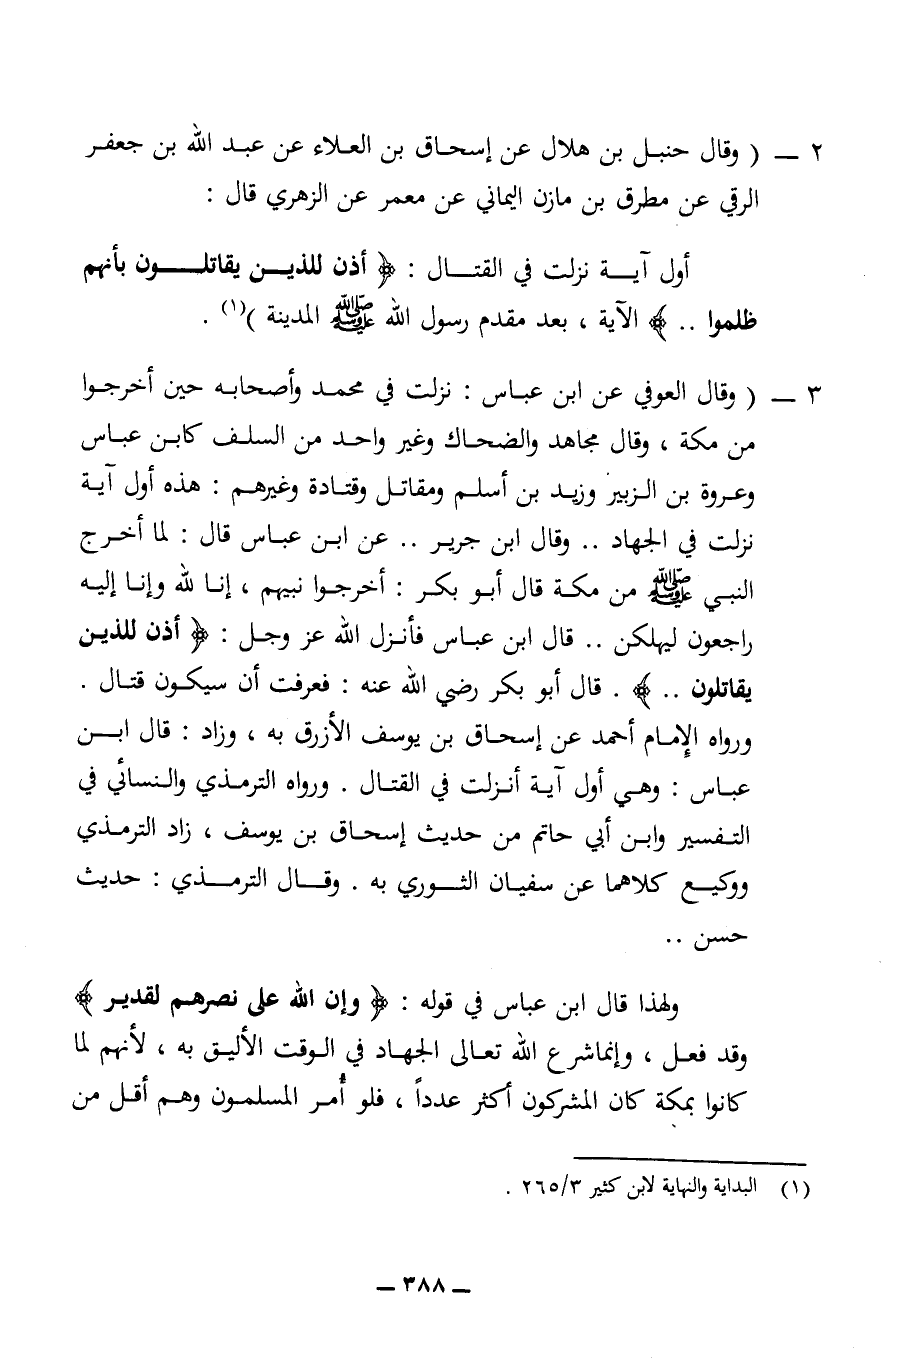 ٢ ــ ( وقال حنبل بن هلال عن إسحاق بن العلاء عن عبد الله بن جعفر
الرقي عن مطرق بن مازن اليماني عن معمر عن الزهري قال :
أول آية نزلت في القتال : ﴿ أذن للذين يقاتلون بأنهم
ظلموا .. ﴾ الآية ، بعد مقدم رسول الله ﷺ المدينة )(١) .
٣ ــ ( وقال العوفي عن ابن عباس : نزلت في محمد وأصحابه حين أخرجوا
من مكة ، وقال مجاهد والضحاك وغير واحد من السلف كابن عباس
وعروة بن الزبير وزيد بن أسلم ومقاتل وقتادة وغيرهم : هذه أول آية
نزلت في الجهاد .. وقال ابن جرير .. عن ابن عباس قال : لما أخرج
النبي ﷺ من مكة قال أبو بكر : أخرجوا نبيهم ، إنا لله وإنا إليه
راجعون ليهلكن .. قال ابن عباس فأنزل الله عز وجل : ﴿ أذن للذين
يقاتلون .. ﴾ . قال أبو بكر رضي الله عنه : فعرفت أن سيكون قتال .
ورواه الإمام أحمد عن إسحاق بن يوسف الأزرق به ، وزاد : قال ابن
عباس : وهي أول آية أنزلت في القتال . ورواه الترمذي والنسائي في
التفسير وابن أبي حاتم من حديث إسحاق بن يوسف ، زاد الترمذي
ووكيع كلاهما عن سفيان الثوري به . وقال الترمذي : حديث
حسن ..
ولهذا قال ابن عباس في قوله : ﴿ وإن الله على نصرهم لقدير ﴾
وقد فعل ، وإنماشرع الله تعالى الجهاد في الوقت الأليق به ، لأنهم لما
كانوا بمكة كان المشركون أكثر عدداً ، فلو أُمر المسلمون وهم أقل من
(١) البداية والنهاية لابن كثير ٢٦٥/٣ .
ــ ٣٨٨ ــ